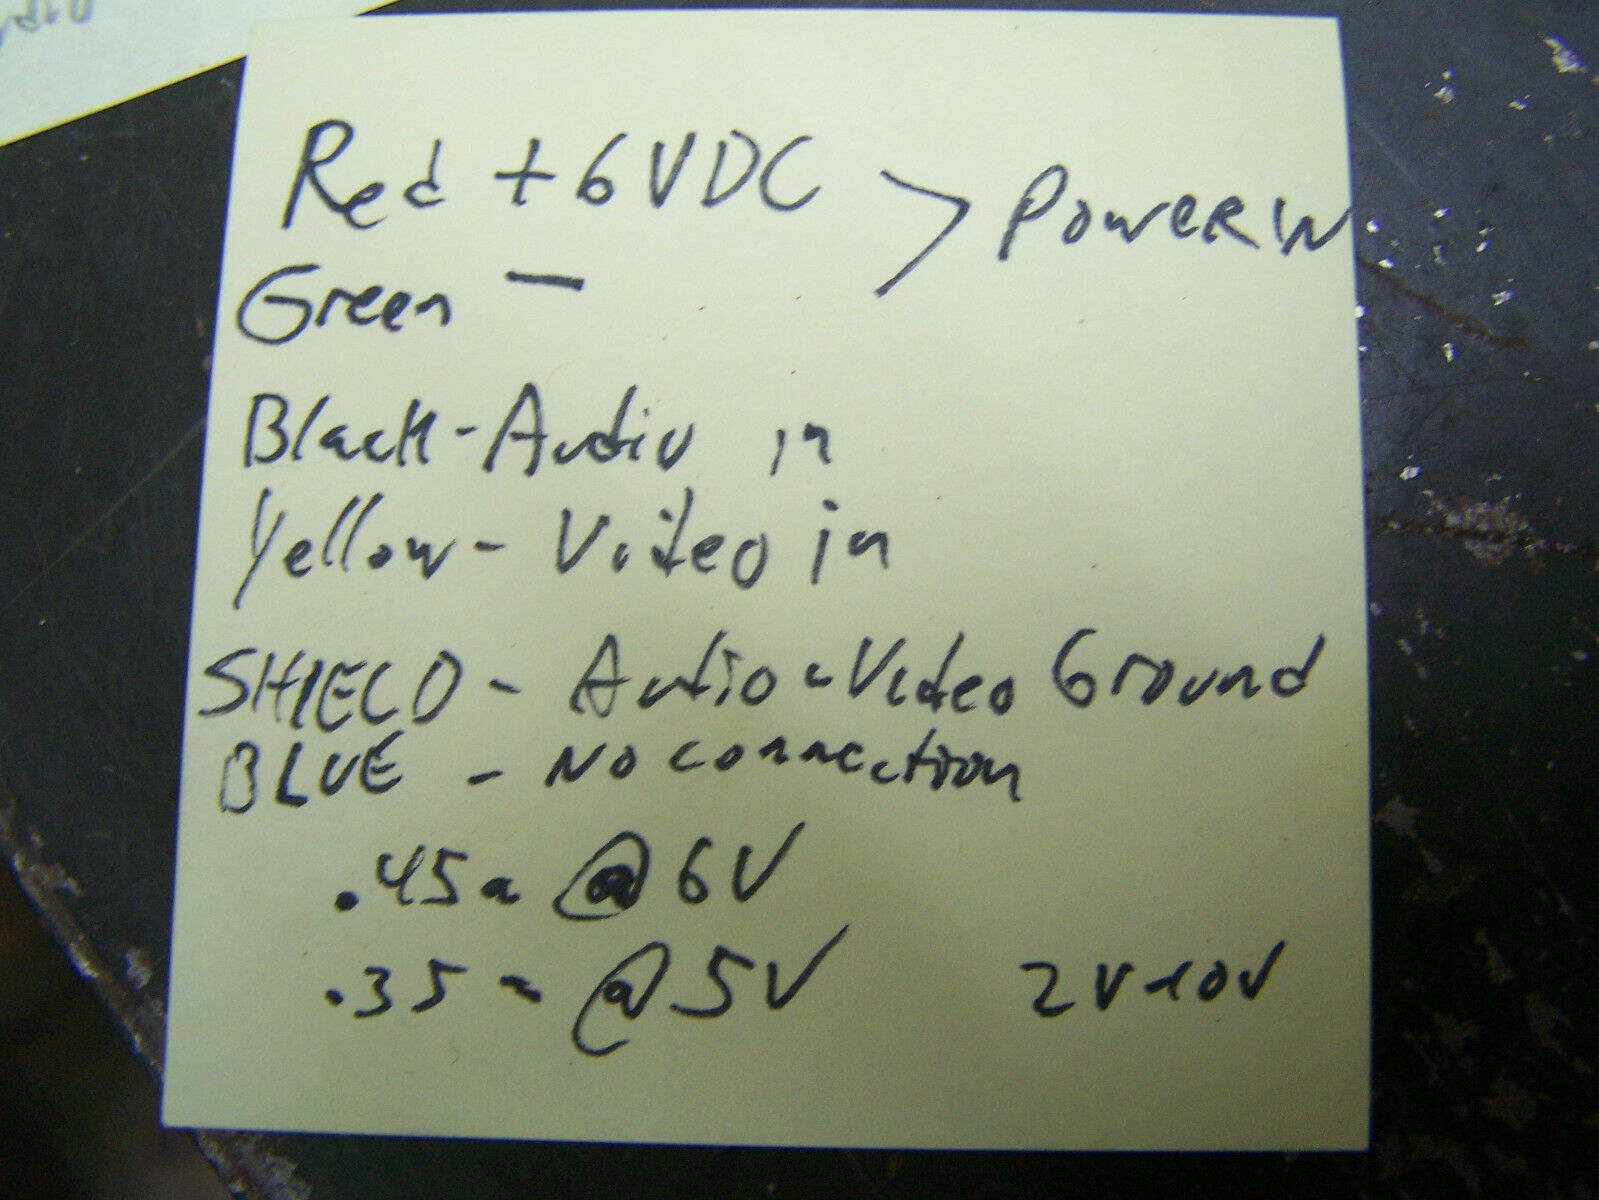 Red + 6 VDC > POWER IN
Green —
Black - Audio in
Yellow - Video in
SHIELD - Audio - Video Ground
BLUE - No connection
.45a @ 6V
.35a @ 5V